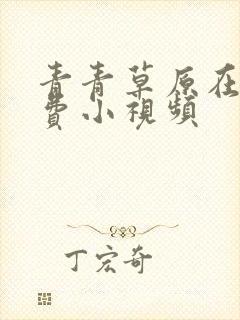 青青草原在
費小視頻
丁宏奇